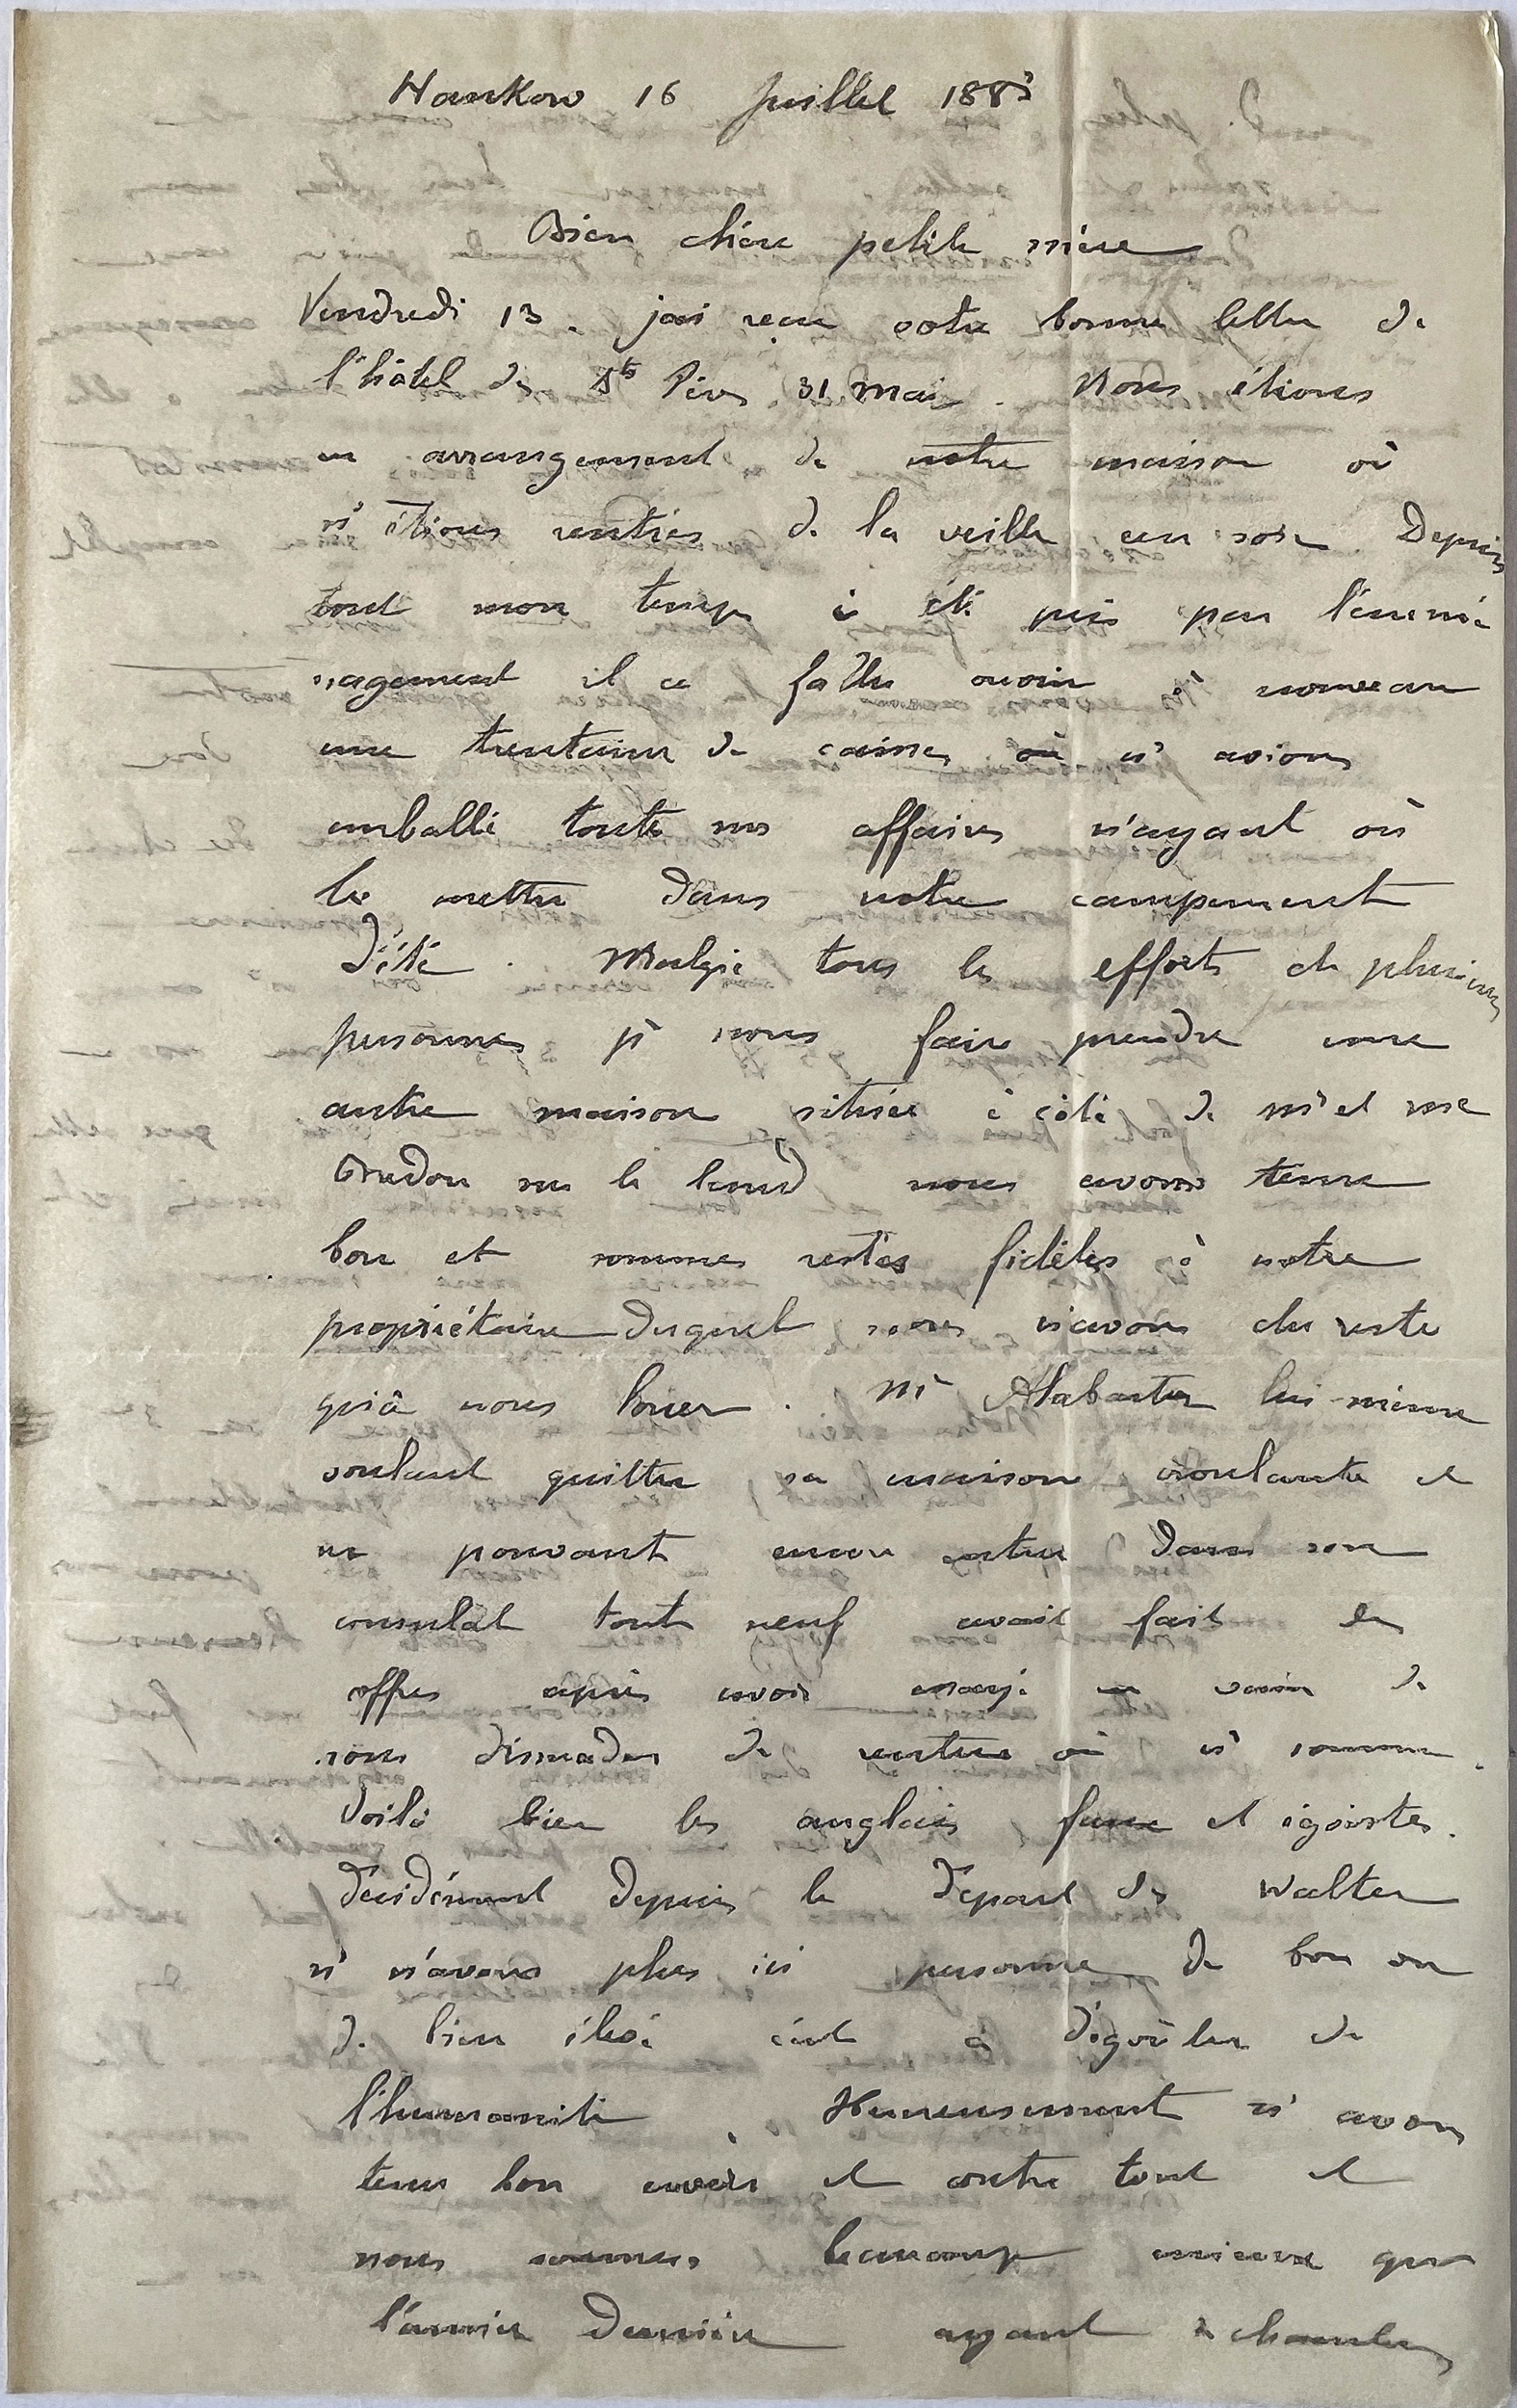 Hankow 16 Juillet 1883
Bien chère petite mère
Vendredi 13. j'ai reçu votre bonne lettre de
l'hôtel des Sts Pères 31 mai. Nous étions
en arrangement de notre maison où
n' étions rentrés de la veille au soir Depuis
tout mon temps a été pris par l'emmé
nagement il a fallu ouvrir à nouveau
une trentaine de caisses où n' avions
emballé toutes nos affaires n'ayant où
les mettre dans notre campement
d'été. Malgré tous les efforts de plusieurs
personnes pr nous faire prendre une
autre maison située à côté de Mr et Me
Bredon sur le bund nous avons tenu
bon et sommes restés fidèles à notre
propriétaire duquel nous n'avons du reste
qu'à nous louer. Mr Alabaster lui-même
voulant quitter sa maison croulante et
ne pouvant encore entrer dans son
consulat tout neuf avait fait des
offres après avoir essayé en vain de
nous dissuader de rentrer où n' sommes.
Voilà bien les anglais faux et égoistes.
Décidément depuis le départ des Walter
n' n'avons plus ici personne de bon ou
de bien élevé c'est à dégoûter de
l'humanité. Heureusement n' avons
tenu bon envers et contre tout et
nous sommes beaucoup mieux que
l'année dernière ayant 2 chambres